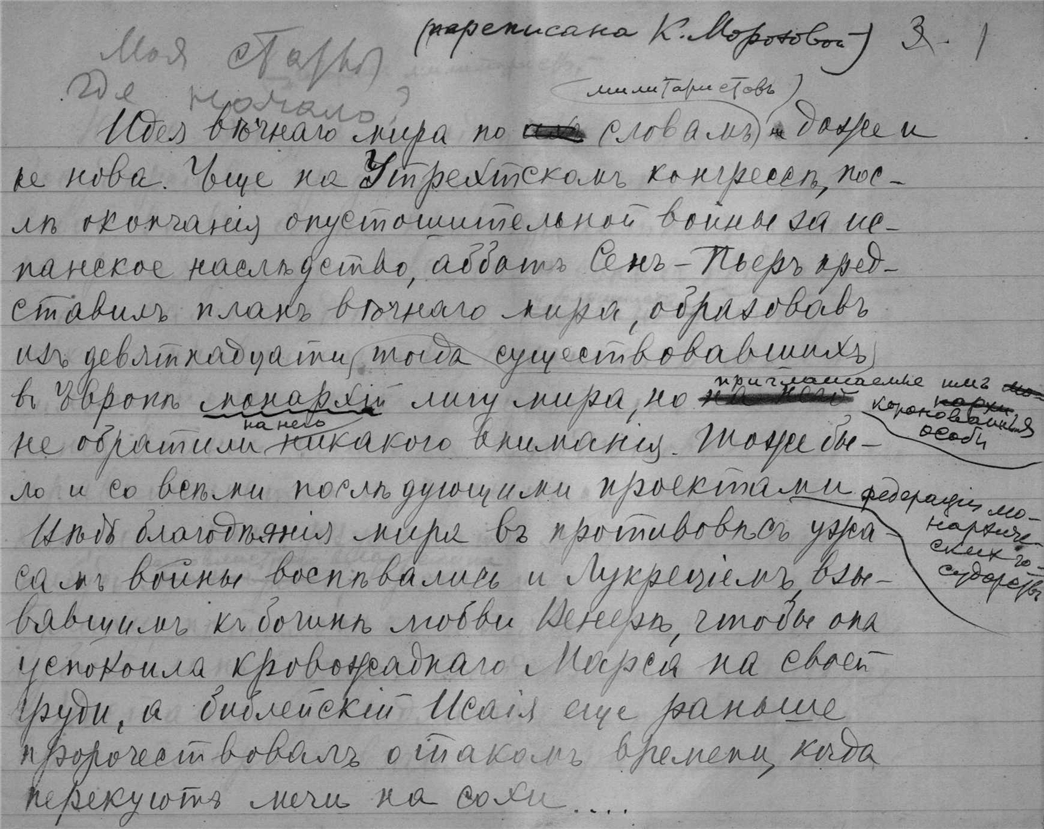 (переписана К. Морозовой) 3. 1
Моя
где начало?
милитаристовъ
Идея вѣчнаго мира по словамъ и даже и
не нова. Еще на Утрехтскомъ конгрессѣ, пос-
лѣ окончанія опустошительной войны за ис-
панское наслѣдство, аббатъ Сенъ-Пьеръ пред-
ставилъ планъ вѣчнаго мира, образовавъ
изъ девятнадцати тогда существовавшихъ
въ Европѣ монархій лигу мира, но на него
приглашаемые имъ
коронованныя
особы
на него
не обратили никакого вниманія. Тоже бы-
ло и со всѣми послѣдующими проектами
федерацій мо-
нархиче-
скихъ го-
сударствъ
Идѣ благодѣянія мира въ противовѣсъ ужа-
самъ войны воспѣвались и Лукреціемъ, взы-
вавшимъ къ богинѣ любви Венерѣ, чтобы она
успокоила кровожаднаго Марса на своей
груди, а библейскій Исаія еще раньше
пророчествовалъ о такомъ времени, когда
перекуютъ мечи на сохи....